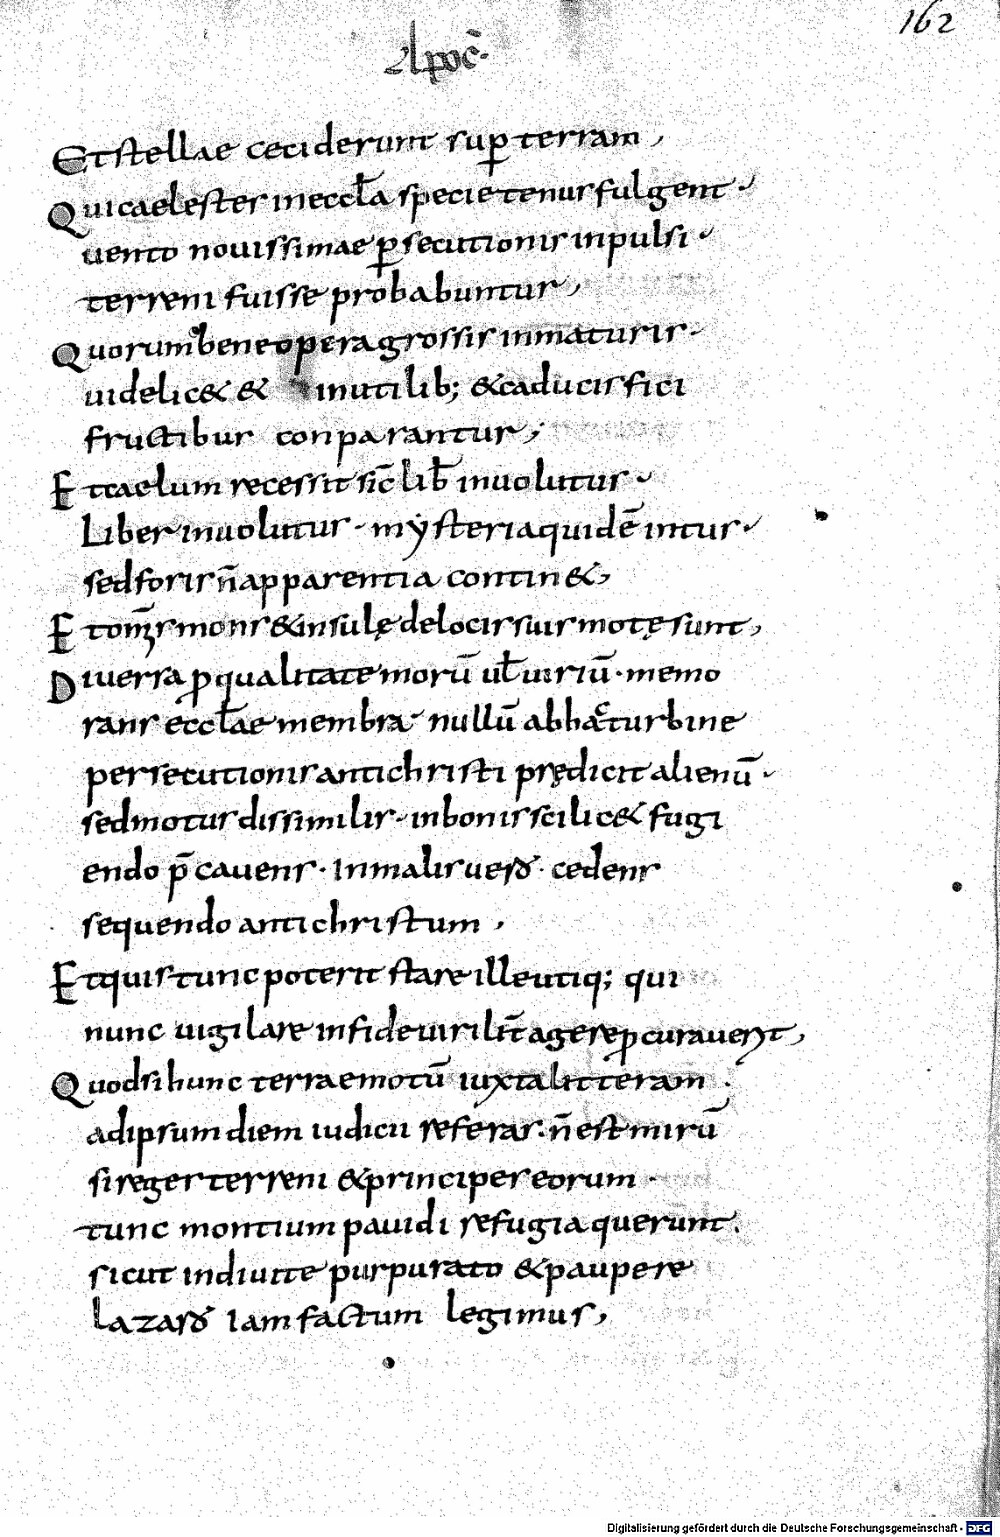 162
Apoc̄.
Et stellae ceciderunt sup̱ terram,
Qui caelestes in eccl̄a specie tenus fulgent.
uento nouissimae p̱secutionis inpulsi.
terreni fuisse probabuntur,
Quorum bene opera grossis inmaturis.
uidelic& & inutilib; & caducis fici
fructibus conparantur;
Et caelum recessit sic̄ lib̄ inuolutus.
Liber inuolutus. mẏsteria quidē intus.
sed foris n̄ apparentia contin&,
Et om̄s mons & insulę de locis suis motę sunt,
Diuersa p̱ qualitate morū ul̄ uiriū. memo
rans eccl̄ae membra. nullū ab hac turbine
persecutionis antichristi prędicit alienū.
sed motus dissimilis. in bonis scilic& fugi
endo p̄cauens. In malis uero. cedens
sequendo antichristum,
Et quis tunc poterit stare ille utiq; qui
nunc uigilare in fide uirilit̄ agere p̱curauerit,
Quod si hunc terraemotū iuxta litteram.
ad ipsum diem iudicii referas. n̄ est mirū
si reges terreni & principes eorum.
tunc montium pauidi refugia querunt.
sicut in diuite purpurato & paupere
Lazaro Iam factum legimus,
Digitalisierung gefördert durch die Deutsche Forschungsgemeinschaft - DFG